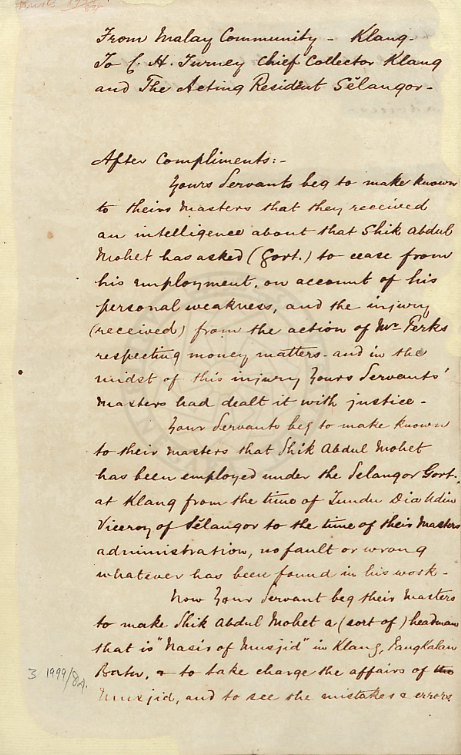 From Malay Community - Klang-
To C. H. Turney Chief Collector Klang
and The Acting Resident Sĕlangor-
After Compliments:-
Yours Servants beg to make known
to theirs Masters that they received
an intelligence about that Shik Abdul
Mohet has asked (Govt.) to cease from
his employment, on account of his
personal weakness, and the injury
(received) from the action of Mr Perks
respecting money matters- and in the
midst of this injury Yours Servants'
Masters had dealt it with justice-
Your Servants beg to make known
to their Masters that Shik Abdul Mohet
has been employed under the Selangor Govt.
at Klang from the time of Tundu Dia Udin
Viceroy of Sĕlangor to the time of their Masters
administration, no fault or wrong
whatever has been found in his work-
Now Your Servant beg their Masters
to make Shik Abdul Mohet a (sort of) headman
that is "Nasir of Musjid" in Klang, Pangkalan
Batu, & to take charge the affairs of the
Musjid, and to see the mistakes & errors
3 1999/84.